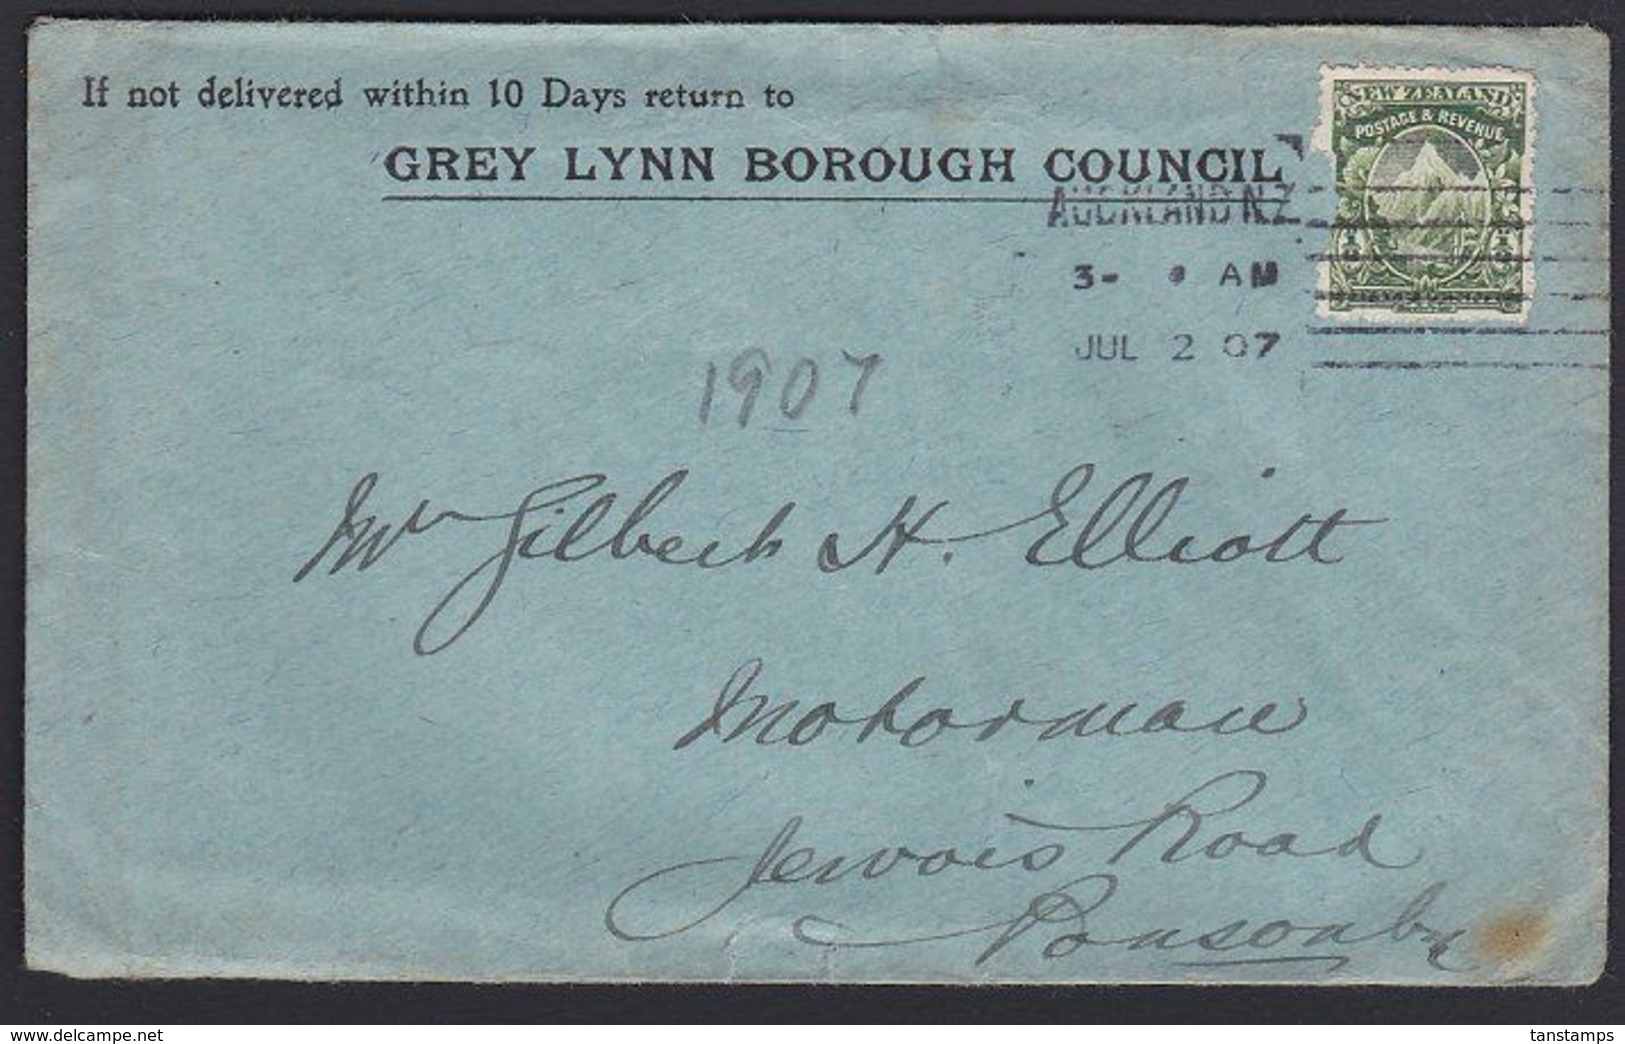 If not delivered within 10 Days return to
GREY LYNN BOROUGH COUNCIL
NEW ZEALAND
POSTAGE & REVENUE
AUCKLAND N.Z.
3- AM
JUL 2 07
1907
Mr Gilbert H. Elliott
Motorman
Jervois Road
Ponsonby
www.delcampe.net
tanstamps